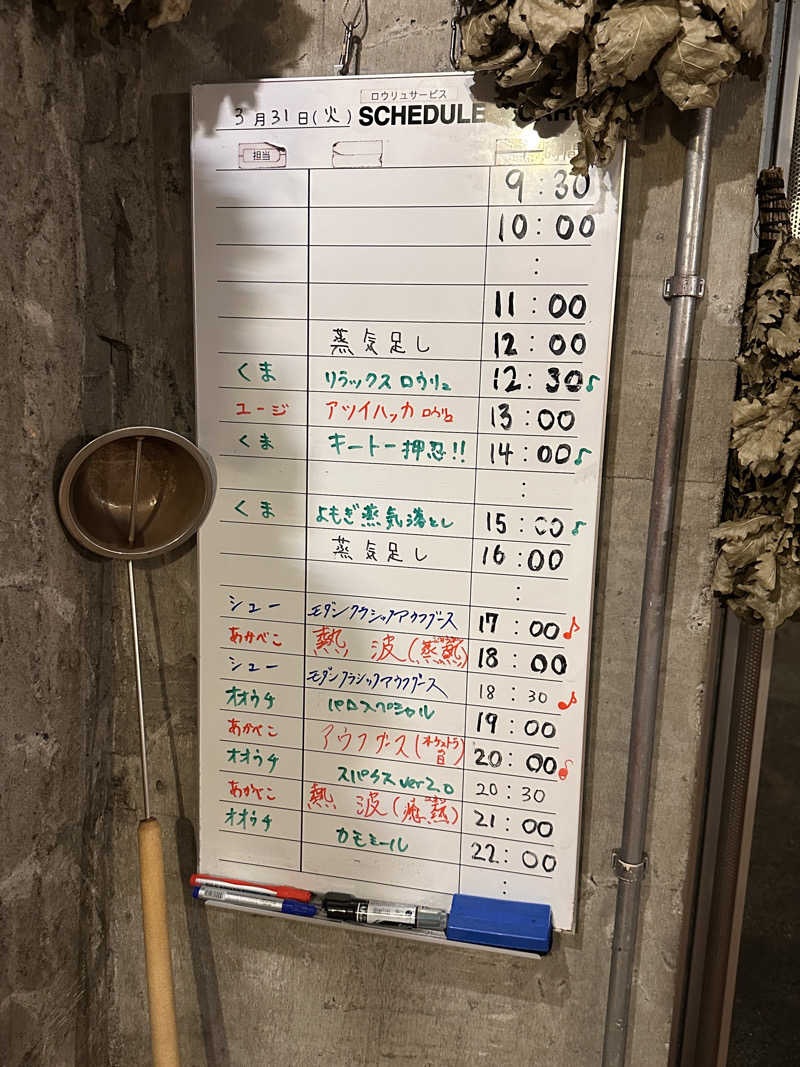 ロウリュサービス
3月31日(火) SCHEDULE
担当
9:30
10:00
:
11:00
蒸気足し 12:00
くま リラックスロウリュ 12:30♪
ユージ アツイハッカ ロウリュ 13:00
くま キートー押忍!! 14:00♪
:
くま よもぎ蒸気落とし 15:00♪
蒸気足し 16:00
:
シュー モダンクラシックアウフグース 17:00♪
あかべこ 熱波(蒸熱) 18:00
シュー モダンクラシックアウフグース 18:30♪
オオウチ パロスペシャル 19:00
あかべこ アウフグース(オケストラ 20:00♪
オオウチ スパイクス ver2.0 20:30
あかべこ 熱波 21:00
オオウチ カモミール 22:00
: